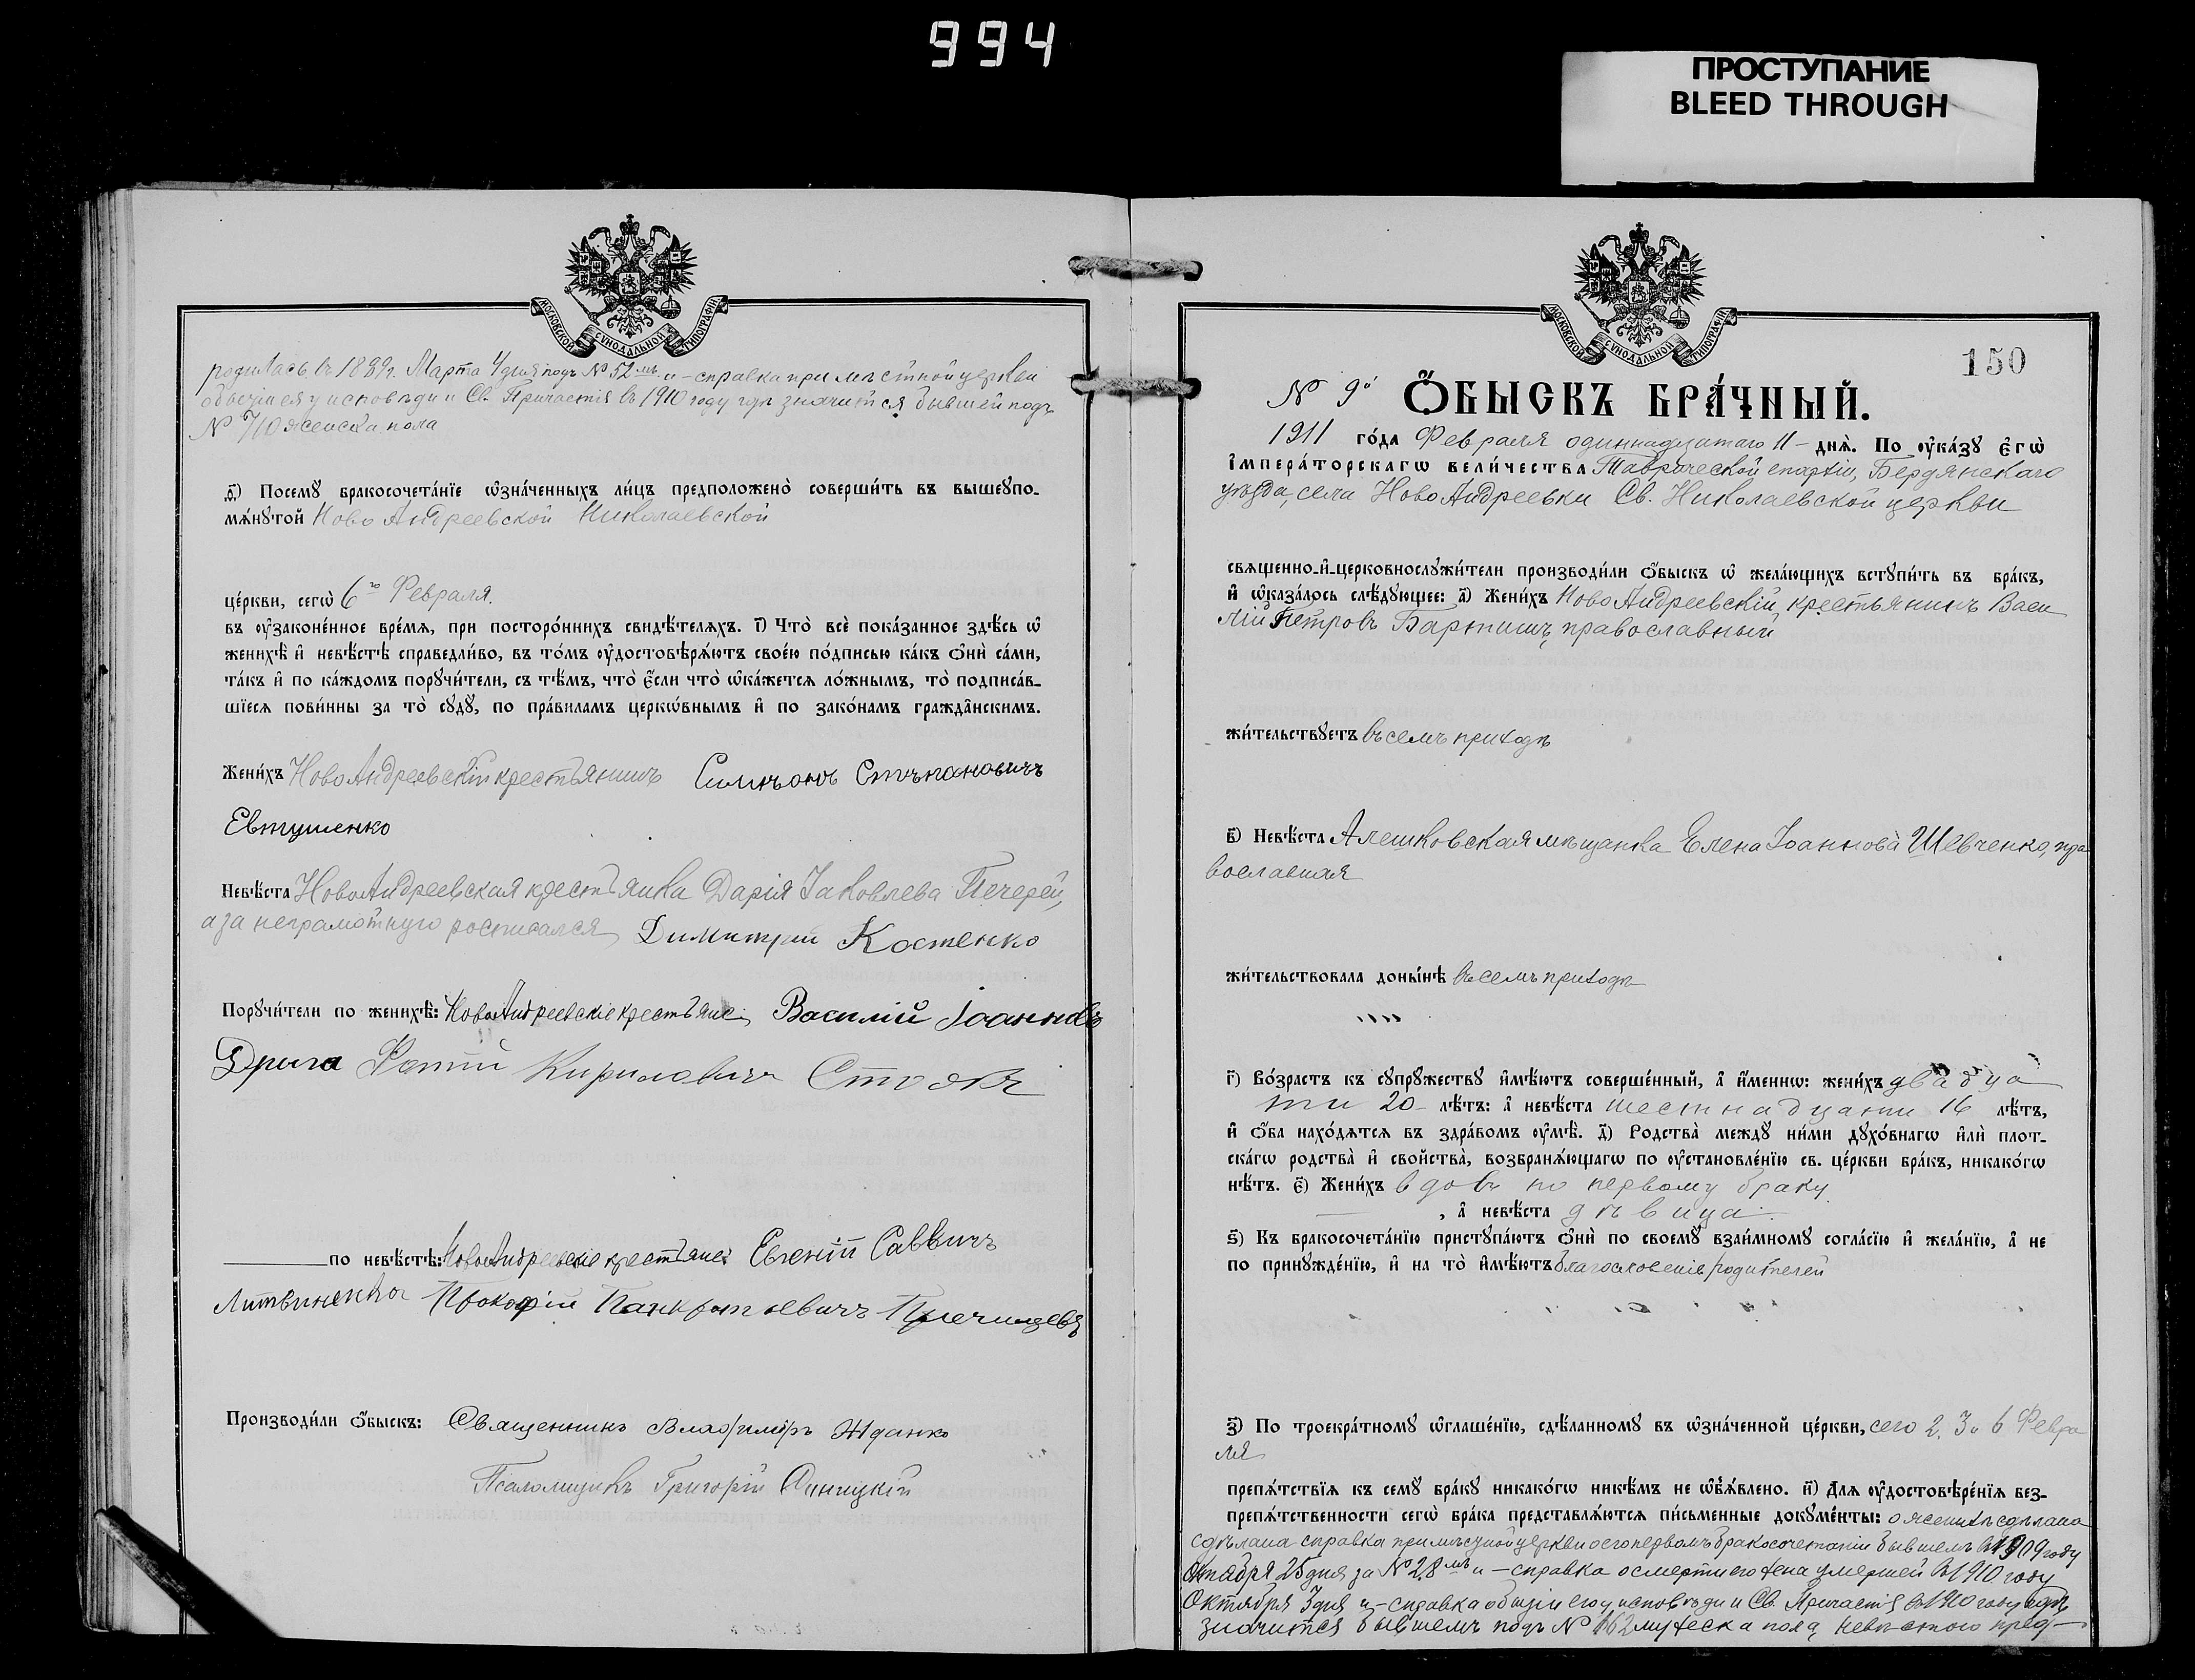 994
ПРОСТУПАНИЕ
BLEED THROUGH
МОСКОВСКОЙ СѴНОДАЛЬНОЙ ТИПОГРАФІИ
родилась въ 1889 г. Марта 4 дня подъ № 52мъ и – справка при мѣстной церкви
о бытіи ея у исповѣди и Св. Причастія въ 1910 году гдѣ значится бывшей подъ
№ 710 женска пола
ѳ҃) Посемꙋ бракосочета́нїе ѡзна́ченныхъ ли́цъ предположено̀ соверши́ть въ вышеꙋпо-
мѧ́нꙋтой Ново Андреевской Николаевской
це́ркви, сегѡ̀ 6го Февраля.
въ ᲂу҆законе́нное вре́мѧ, при посторо́ннихъ свидѣ́телѧхъ. і҃) Что̀ всѐ пока́занное здѣ́сь ѡ҆
женихѣ̀ и҆ невѣ́стѣ справедли́во, въ то́мъ ᲂу҆достовѣрѧ́ютъ свое́ю по́дписью ка́къ ѻ҆нѝ са́ми,
та́къ и҆ по ка́ждомъ порꙋчи́тели, съ тѣ́мъ, что̀ є҆́сли что̀ ѡ҆ка́жетсѧ ло́жнымъ, то̀ подписа́в-
шїесѧ пови́нны за то̀ сꙋдꙋ̀, по пра́виламъ церкѡ́внымъ и҆ по зако́намъ гражда̂нскимъ.
Жени́хъ Ново Андреевскій крестьянинъ Симѣонъ Стѣпановичъ
Евтушенко
Невѣ́ста Ново Андреевская крестьянка Дарія Іаковлева Печерей,
а за неграмотную росписался Димитрий Костенко
Порꙋчи́тели по женихѣ̀: Ново Андреевскіе крестьяне: Василий Іоанновъ
Дрыга Фотий Кириловичъ
по невѣ́стѣ: Ново Андреевские крестьяне: Евгеній Саввичъ
Литвиненко Прокофій Панкратьевичъ
Производи́ли ѻ҆́быскъ: Священникъ Владиміръ Жданко
Псаломщикъ Григорій Синицкій
МОСКОВСКОЙ СѴНОДАЛЬНОЙ ТИПОГРАФІИ
150
№ 9й Ѻ҆́БЫСКЪ БРА́ЧНЫЙ.
1911 го́да Февраля одиннадцатаго 11 – днѧ̀. По ᲂу҆ка́зꙋ є҆гѡ̀
і҆мпера́торскагѡ вели́чества Таврической епархіи, Бердянскаго
уѣзда, села Ново Андреевки Св. Николаевской церкви
свѧщенно-и҆-церковнослꙋжи́тели производи́ли ѻ҆́быскъ ѡ҆ жела́ющихъ встꙋпи́ть въ бра́къ,
и҆ ѡ҆каза́лось слѣ́дꙋющее: а҃) Жени́хъ Ново Андреевскій крестьянинъ Васи
лій Петровъ Бартишъ, православный
жи́тельствꙋетъ въ семъ приходѣ
в҃) Невѣ́ста Алешковская мѣщанка Елена Іоаннова Шевченко, пра
вославная
жи́тельствовала доны́нѣ въ семъ приходѣ
г҃) Во́зрастъ къ сꙋпрꙋ́жествꙋ и҆мѣ́ютъ соверше́нный, а҆ и҆́меннѡ: жени́хъ двадца
ти 20 – лѣ́тъ: а҆ невѣ́ста шестнадцати 16 лѣ́тъ,
и҆ ѻ҆́ба нахо́дѧтсѧ въ здра́вомъ ᲂу҆мѣ̀. д҃) Родства̀ междꙋ ни́ми дꙋхо́внагѡ и҆лѝ плот-
ска́гѡ родства̀ и҆ свойства̀, возбранѧ́ющагѡ по ᲂу҆становле́нїю св. це́ркви бра́къ, никако́гѡ
нѣ́тъ. є҃) Жени́хъ вдовъ по первому браку
, а҆ невѣ́ста дѣвица.
ѕ҃) Къ бракосочета́нїю пристꙋпа́ютъ ѻ҆нѝ по своемꙋ взаи́мномꙋ согла́сїю и҆ жела́нїю, а҆ не
по принꙋжде́нїю, и҆ на то̀ и҆мѣ́ютъ благословеніе родителей
з҃) По троекра́тномꙋ ѡ҆глаше́нїю, сдѣ́ланномꙋ въ ѡ҆зна́ченной це́ркви, сего 2, 3 и 6 Февра
ля
препѧ́тствїѧ къ семꙋ бра́кꙋ никако́гѡ никѣ́мъ не ѡ҆б̾ѧ́влено. и҃) Длѧ ᲂу҆достовѣре́нїѧ без-
препѧ́тственности сегѡ̀ бра́ка представлѧ́ютсѧ пи́сьменные докꙋме́нты: о женихѣ сдѣлана
сдѣлана справка при мѣстной церкви о его первомъ бракосочетаніи бывшемъ въ 1909 году
Октября 25 дня за № 28мъ и – справка о смерти его жена умершей въ 1910 году
Октября 3 дня и – справка о бытіи его у исповѣди и Св. Причастія въ 1910 году гдѣ
значится бывшемъ подъ № 662 мужеска пола, невѣстою пред–